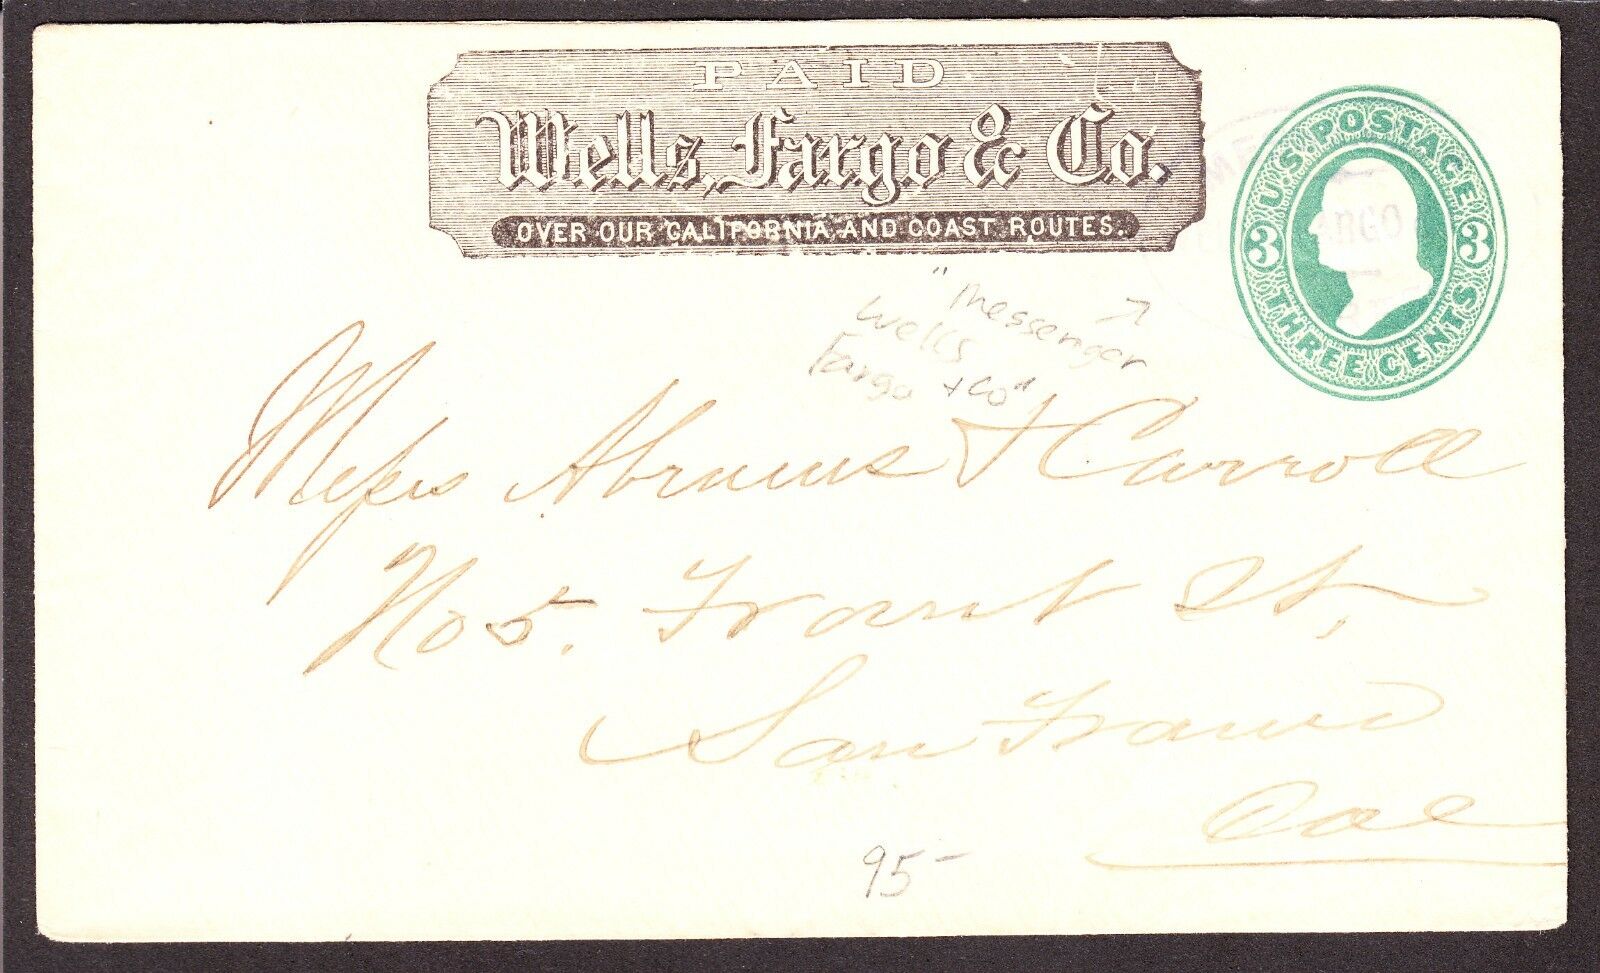 PAID
Wells, Fargo & Co.
OVER OUR CALIFORNIA AND COAST ROUTES.
U.S. POSTAGE
3 3
THREE CENTS
ARGO
"Messenger
Wells
Fargo + Co"
Mess Abrams & Carroll
No 5. Front St,
San Franco
Cal
95-